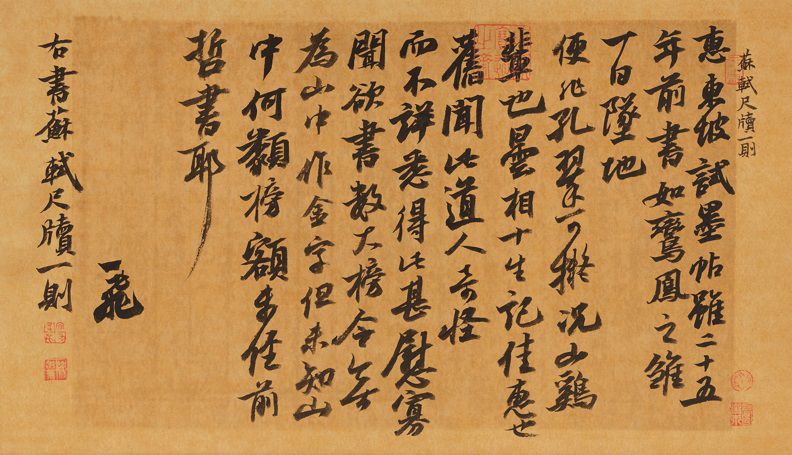 蘇軾尺牘一則
惠東坡試墨帖雖二十五
年前書如鸞鳳之雛
一日墜地
便非孔翠可擬況山鷄
輩也曇相十生記佳惠也
舊聞此道人奇怪
而不詳悉得此甚慰寡
聞欲書數大榜今無
為山中作金字但未知山
中何類榜額未經前
哲書耶
一飛
右書蘇軾尺牘一則